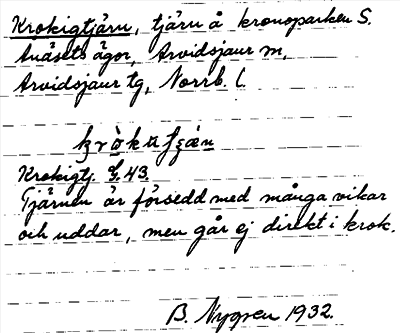 Krokigtjärn, tjärn å kronoparken S.
Anäsets ägor, Arvidsjaur m,
Arvidsjaur tg, Norrb. l.
Krokigtj. G.43.
Tjärnen är försedd med många vikar
och uddar, men går ej direkt i krok.
B. Nygren 1932.